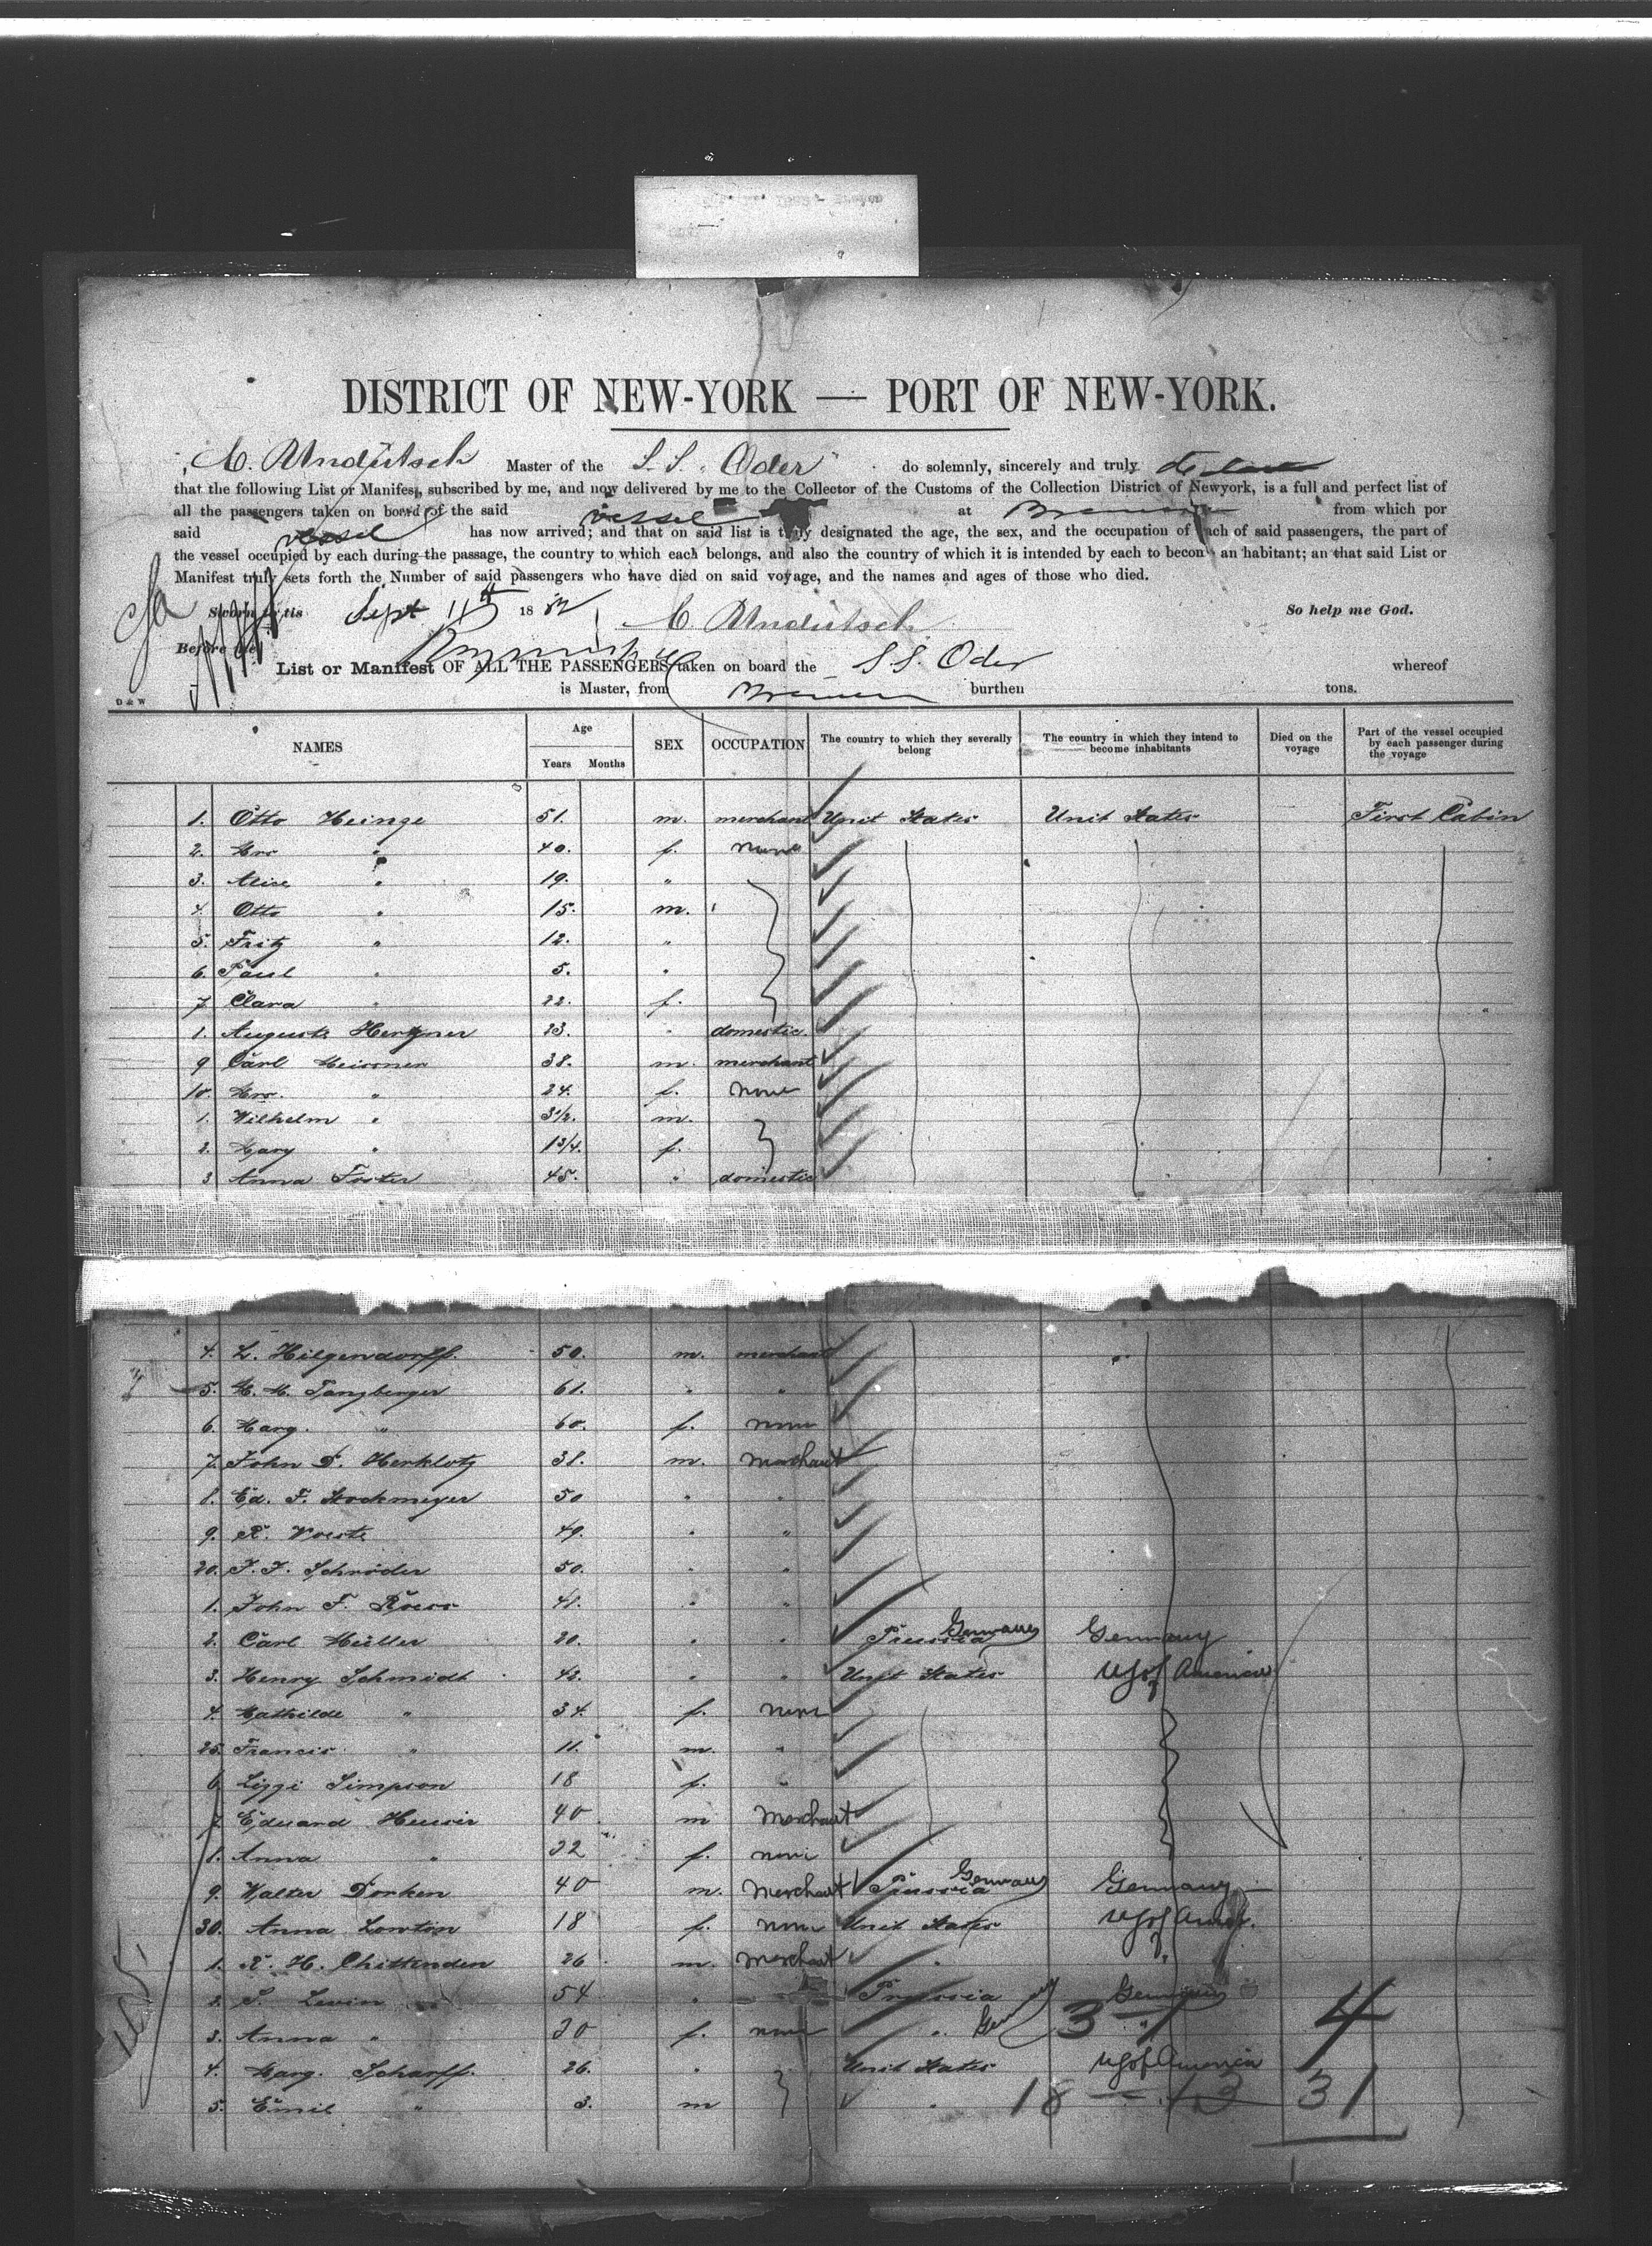 DISTRICT OF NEW-YORK — PORT OF NEW-YORK.
C. Undütsch Master of the S.S. "Oder" do solemnly, sincerely and truly declare
that the following List or Manifest, subscribed by me, and now delivered by me to the Collector of the Customs of the Collection District of Newyork, is a full and perfect list of
all the passengers taken on board of the said vessel at Bremen from which por
said vessel has now arrived; and that on said list is truly designated the age, the sex, and the occupation of each of said passengers, the part of
the vessel occupied by each during the passage, the country to which each belongs, and also the country of which it is intended by each to becom an habitant; an that said List or
Manifest truly sets forth the Number of said passengers who have died on said voyage, and the names and ages of those who died.
Sworn to tis Sept 11th 1882 C Undütsch So help me God.
Before me
List or Manifest OF ALL THE PASSENGERS taken on board the S.S. Oder whereof
is Master, from Bremen burthen tons.
D & W
NAMES Age Years Months SEX OCCUPATION The country to which they severally belong The country in which they intend to become inhabitants Died on the voyage Part of the vessel occupied by each passenger during the voyage
1. Otto Heinze 51. m. merchant Unit States Unit States First Cabin
2. Mrs " 40. f. none
3. Alice " 19. "
4. Otto " 15. m.
5. Fritz " 12. "
6. Paul " 5. "
7. Clara " 22. f.
1. Auguste 23. " domestic.
9 Carl Meissner 38. m. merchant
10. Mrs. " 24. f. none
1. Wilhelm " 3 1/2. m.
2. Mary " 1 3/4. f.
3. Anna Foster 45. " domestic
4. L. Hilgendorff. 50. m. merchant
5. M. M. Tanzberger 61. " "
6. Marg. " 60. f. none
7. John D. Herklotz 38. m. merchant
8. Ed. F. Stockmeyer 50 " "
9. R. Woeste 49. " "
20. F. F. Schröder 50. " "
1. John F. Roess 41. " "
2. Carl Müller 20. " " Prussia Germany Germany
3. Henry Schmidt 42. " " Unit States US of America
4. Mathilde " 34. f. none
25. Francis " 11. m. "
6. Lizzi Simpson 18 f. "
7. Eduard 40 m Merchant
8. Anna " 22 f. none
9. Walter Dorken 40 m. Merchant Prussia Germany Germany
30. Anna Lowton 18 f. none Unit States US of Amer.
1. R. H. Chittenden 26 m. Merchant " "
2. S. Levin 54 " Prussia Germany
3. Anna " 20 f. none " Ger " 3 - 1 4
4. Marg. Scharff. 26. " Unit States US of America
5. Emil " 3. m " 18 - 13 31